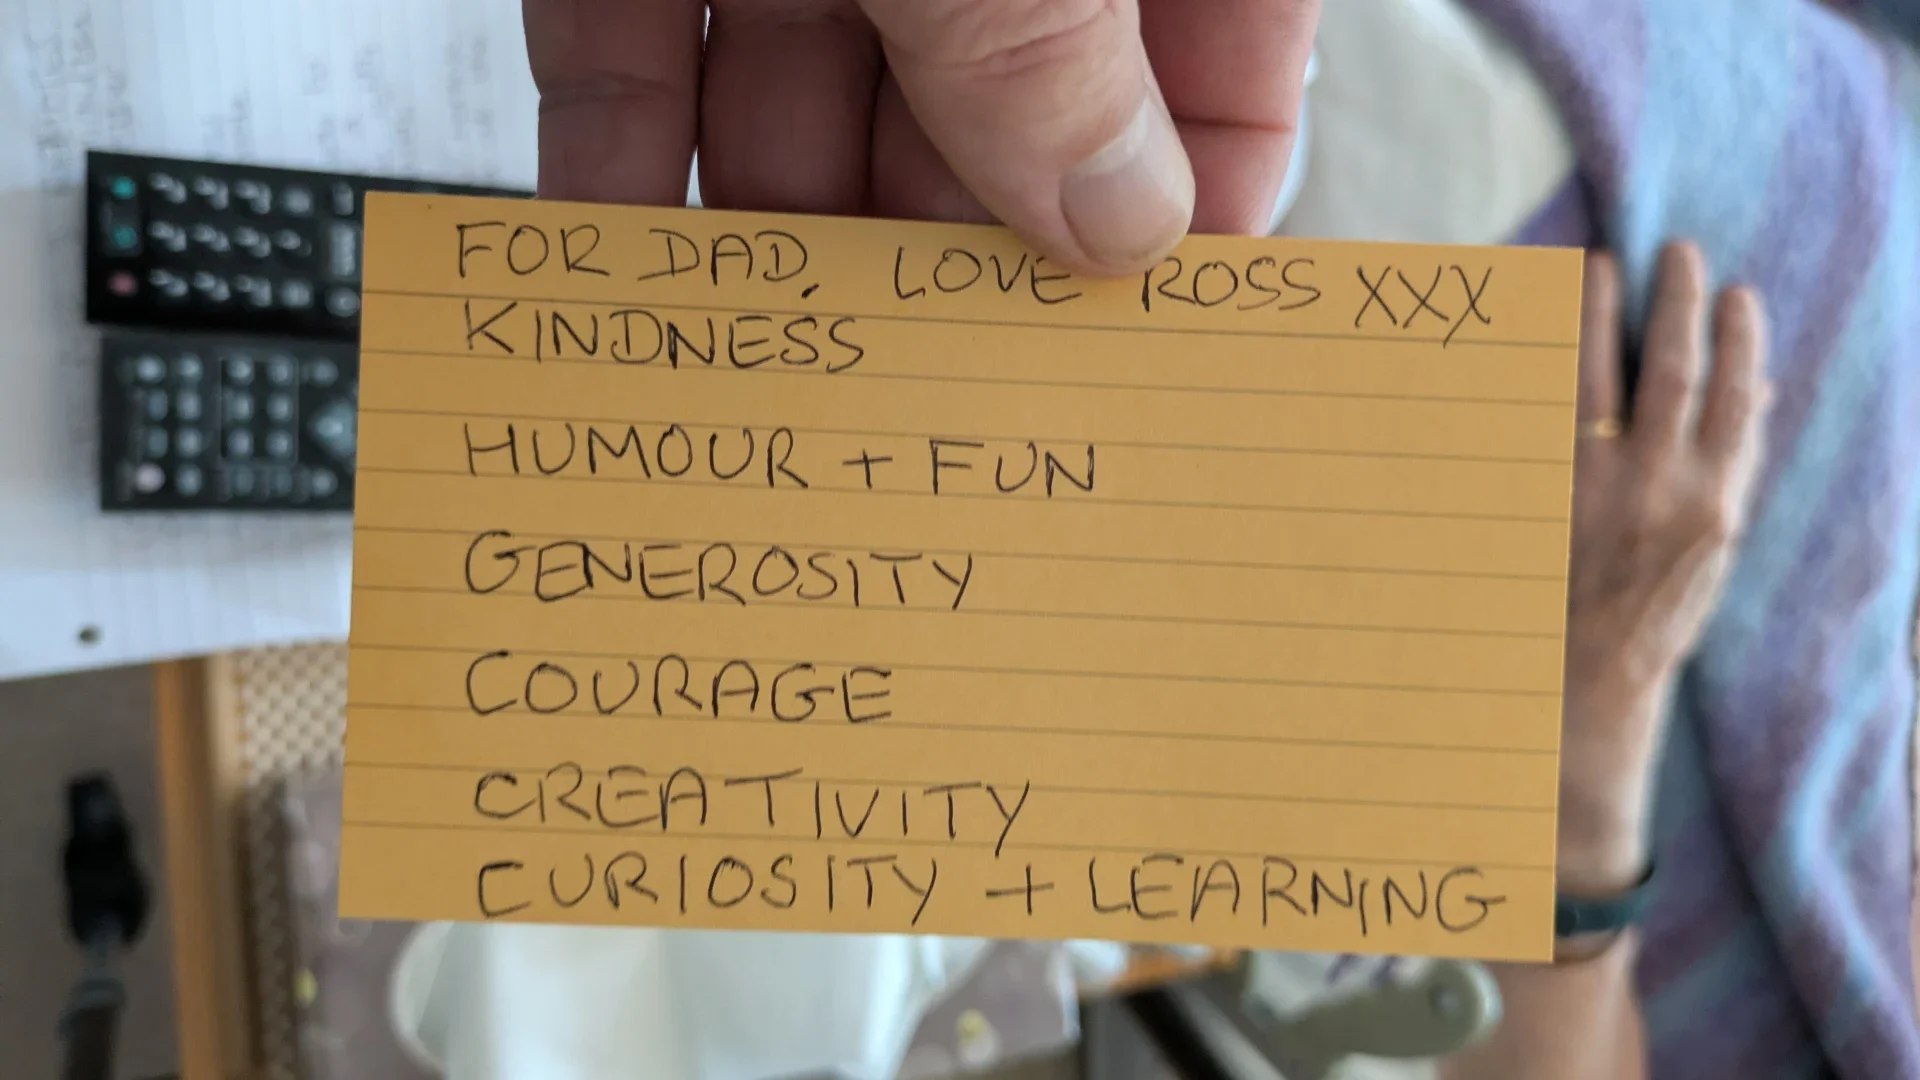 FOR DAD, LOVE ROSS XXX
KINDNESS
HUMOUR + FUN
GENEROSITY
COURAGE
CREATIVITY
CURIOSITY + LEARNING